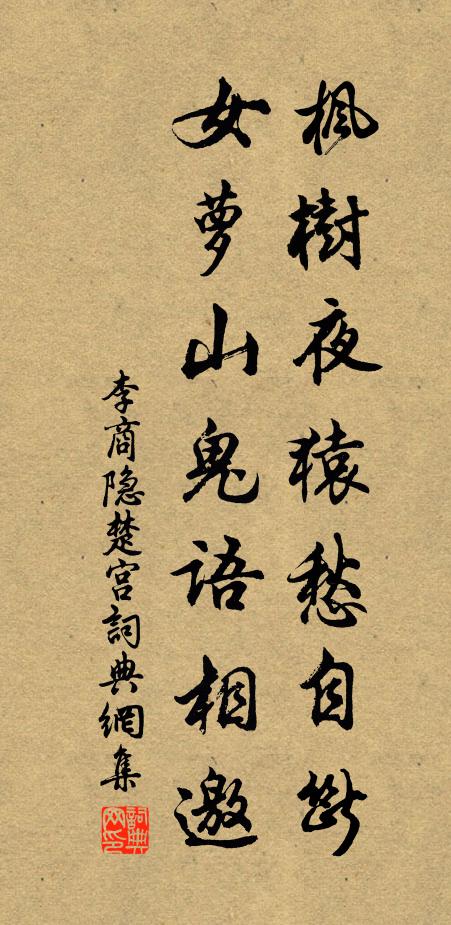 枫樹夜猿愁自斷
女萝山鬼語相邀
李商隐楚宫詞典網集
詞典网印